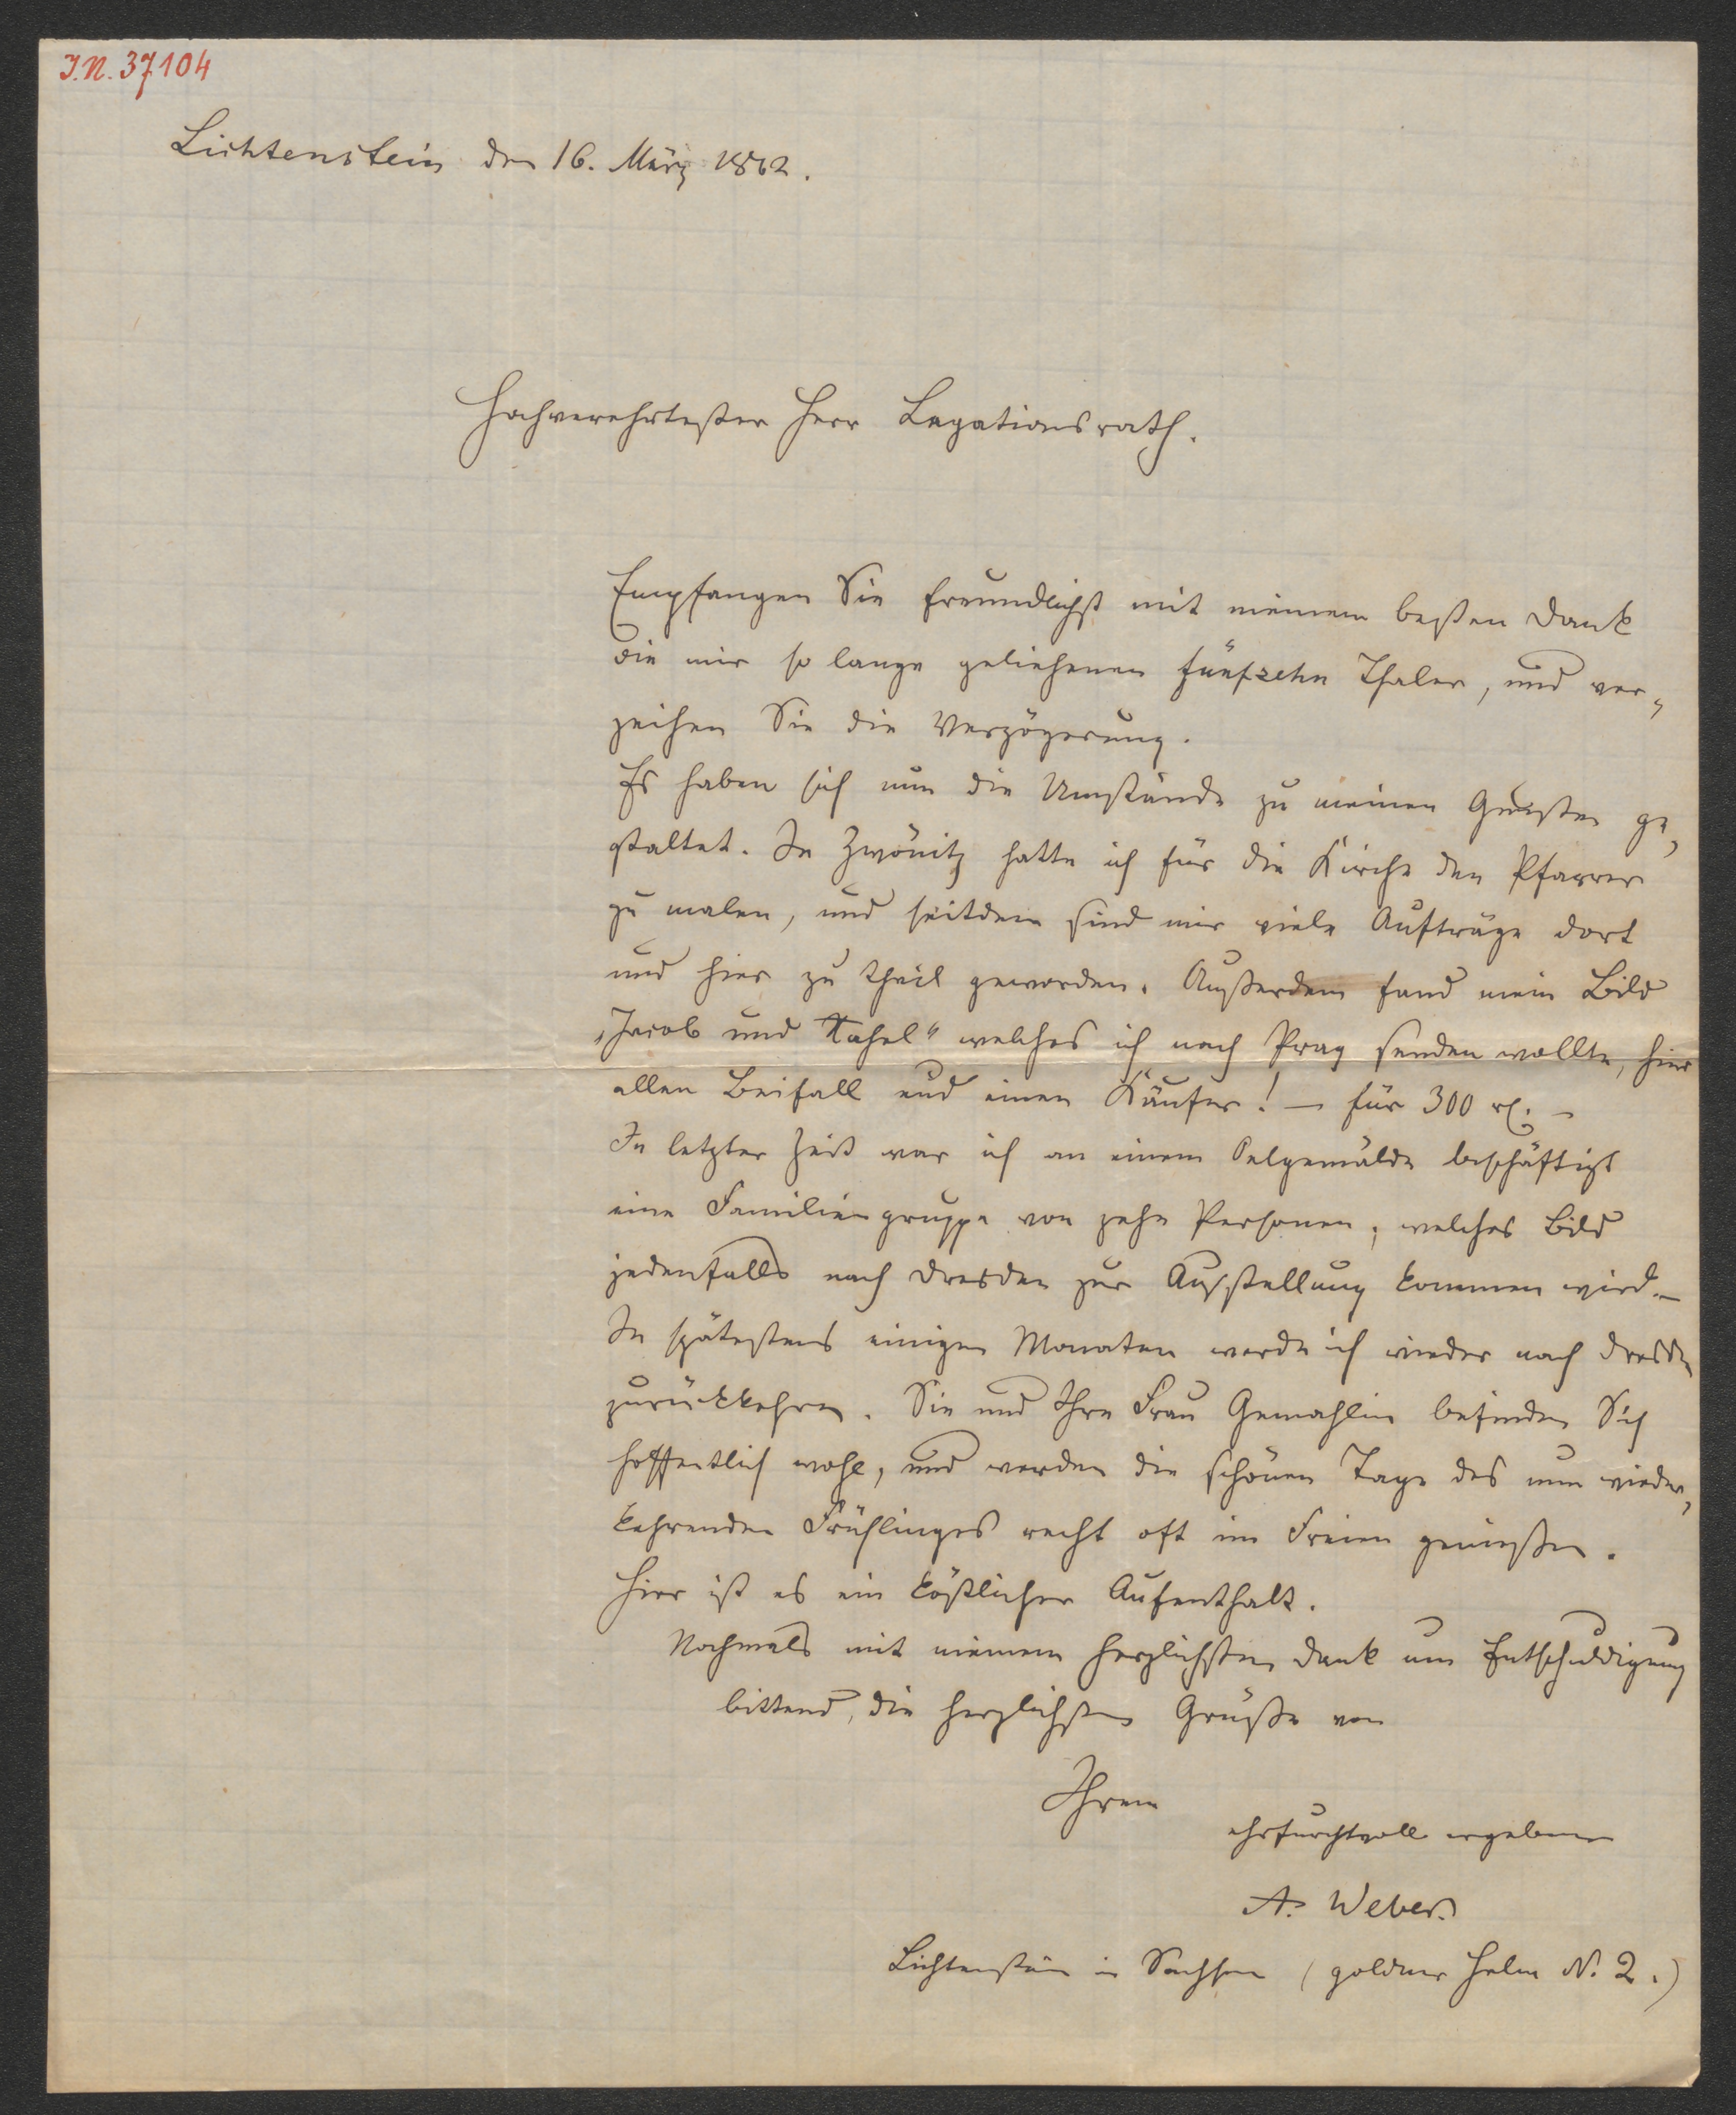 I.N. 37104
Lichtenstein den 16. März 1862.
Hochverehrtester Herr Legationsrath.
Empfangen Sie freundlichst mit meinem besten Dank
die mir so lange geliehenen fünfzehn Thaler, und ver-
zeihen Sie die Verzögerung.
Es haben sich nun die Umstände zu meinen Gunsten ge-
staltet. In Zwönitz hatte ich für die Kirche den Pfarrer
zu malen, und seitdem sind mir viele Aufträge dort
und hier zu theil geworden. Außerdem fand mein Bild
„Jacob und Rahel“ welches ich nach Prag senden wollte, hier
allen Beifall und einen Käufer! — für 300 rℓ. —
In letzter Zeit war ich an einem Oelgemälde beschäftigt
eine Familiengruppe von zehn Personen, welches Bild
jedenfalls nach Dresden zur Ausstellung kommen wird. —
In spätestens einigen Monaten werde ich wieder nach Dresden
zurückkehren. Sie und Ihre Frau Gemahlin befinden Sich
hoffentlich wohl, und werden die schönen Tage des nun wieder-
kehrenden Frühlinges recht oft im Freien genießen.
Hier ist es ein köstlicher Aufenthalt.
Nochmals mit meinem herzlichsten Dank um Entschuldigung
bittend, die herzlichsten Grüße von
Ihrem
ehrfurchtvoll ergebenen
A. Weber.
Lichtenstein in Sachsen (goldner Helm N. 2.)